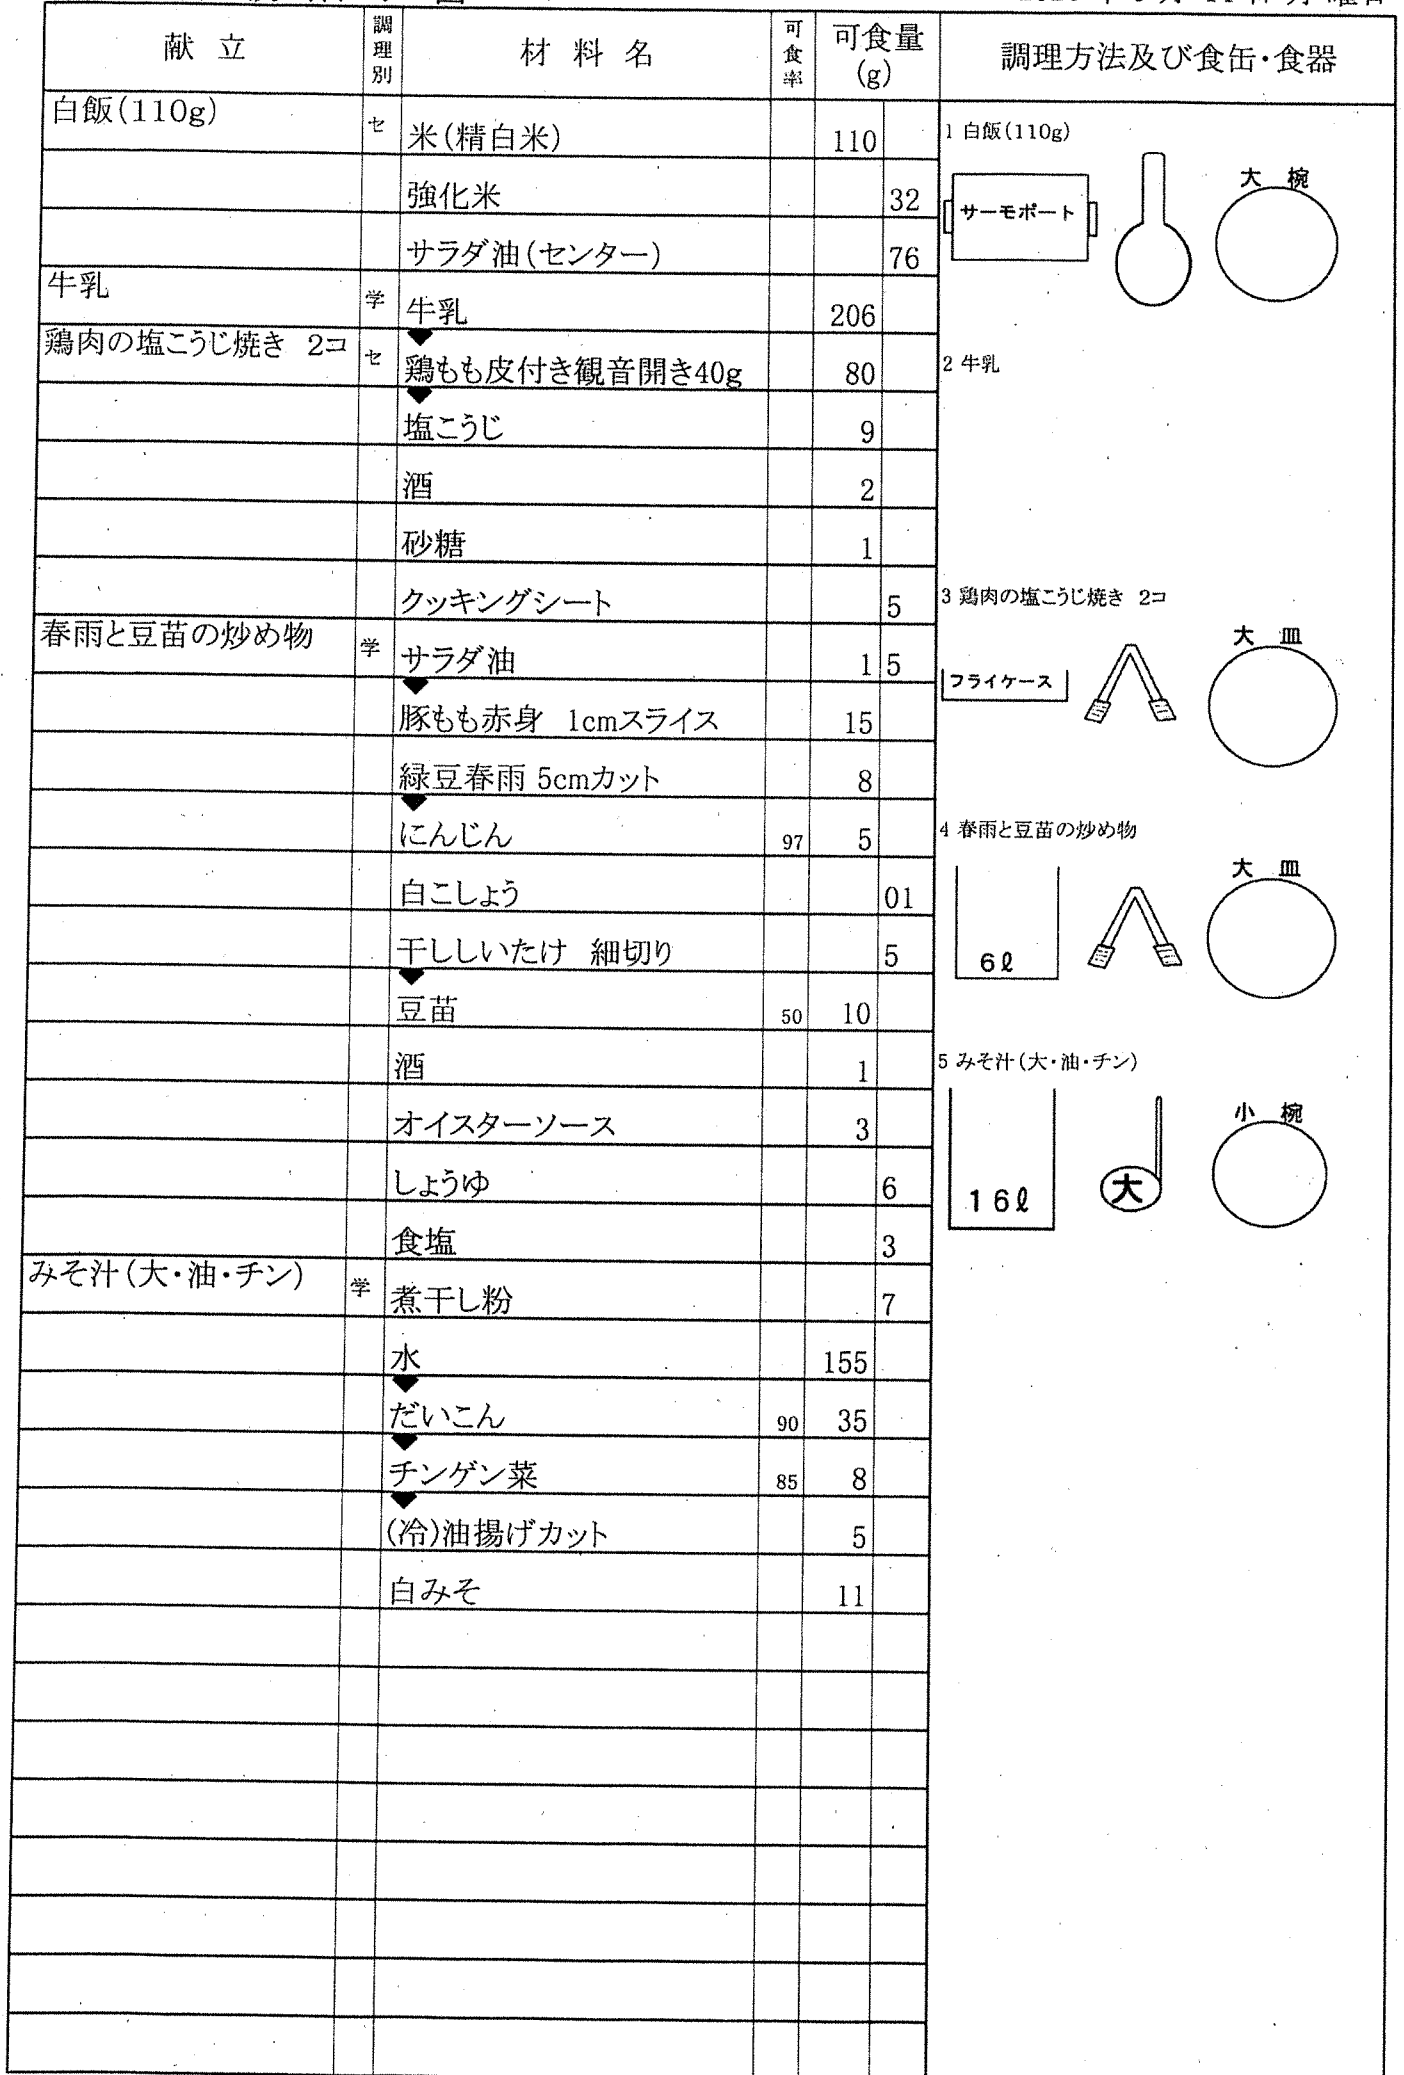 献立 調理別 材料名 可食率 可食量(g) 調理方法及び食缶・食器
白飯(110g) セ 米(精白米) 110
強化米 32
サラダ油(センター) 76
牛乳 学 牛乳 206
鶏肉の塩こうじ焼き 2コ セ 鶏もも皮付き観音開き40g 80
塩こうじ 9
酒 2
砂糖 1
クッキングシート 5
春雨と豆苗の炒め物 学 サラダ油 1 5
豚もも赤身 1cmスライス 15
緑豆春雨 5cmカット 8
にんじん 97 5
白こしょう 01
干ししいたけ 細切り 5
豆苗 50 10
酒 1
オイスターソース 3
しょうゆ 6
食塩 3
みそ汁(大・油・チン) 学 煮干し粉 7
水 155
だいこん 90 35
チンゲン菜 85 8
(冷)油揚げカット 5
白みそ 11
1 白飯(110g)
サーモポート 大 椀
2 牛乳
3 鶏肉の塩こうじ焼き 2コ
フライケース 大 皿
4 春雨と豆苗の炒め物
6ℓ 大 皿
5 みそ汁(大・油・チン)
16ℓ 大 小 椀